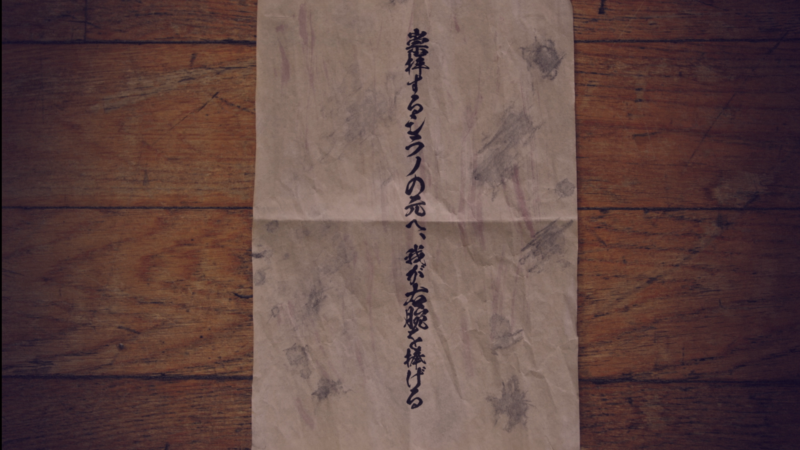 崇拝するシワノの元へ、我が右腕を捧げる